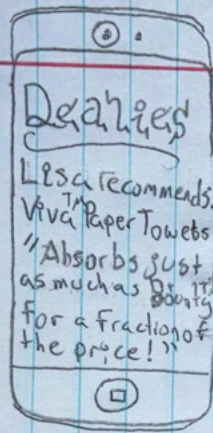 Dealies
Lisa recommends:
Viva™ Paper Towels
"Absorbs just
as much as Bounty
for a fraction of
the price!"